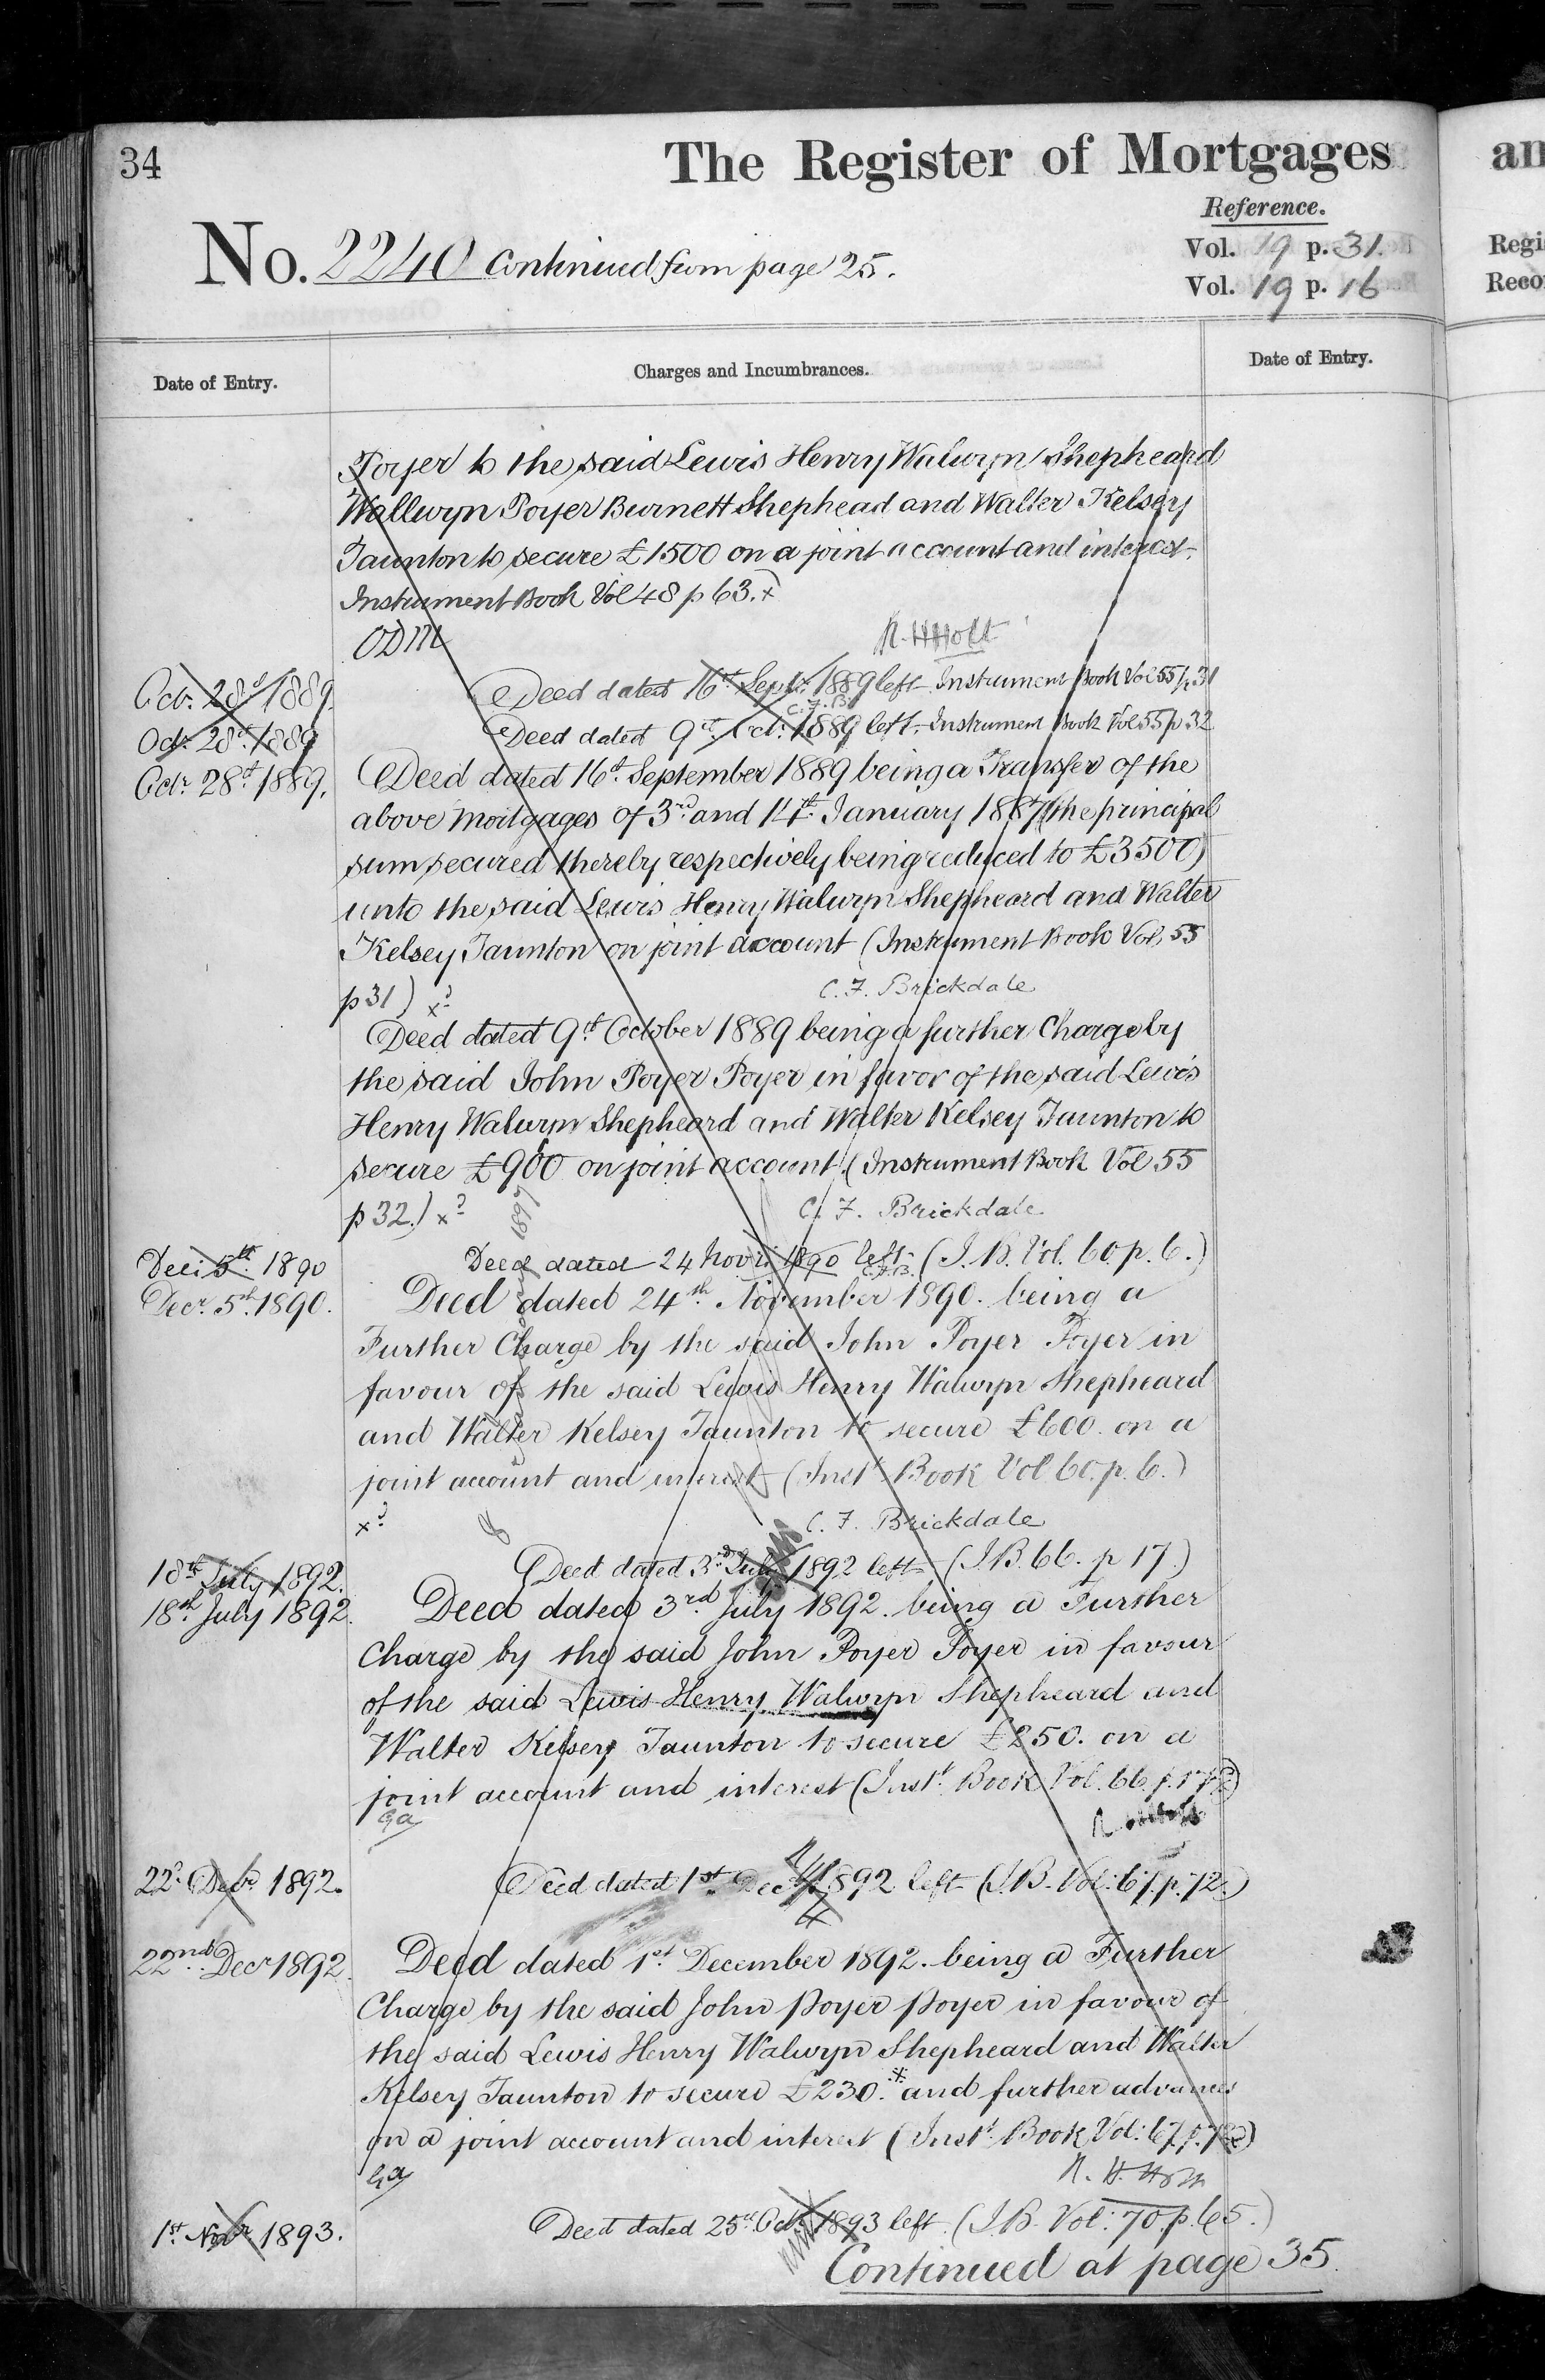 34
The Register of Mortgages
an
Reference.
No. 2240 Continued from page 25.
Vol. 19 p. 31.
Vol. 19 p. 16
Regi
Reco
Date of Entry.
Charges and Incumbrances.
Date of Entry.
Poyer to the said Lewis Henry Walwyn Shepheard
Wallwyn Poyer Burnett Shephead and Walter Kelsey
Taunton to secure £1500 on a joint account and interest.
Instrument Book Vol 48 p 63. x
ODM
R. H Holt
Octr. 28th 1889. Deed dated 16th Septr. 1889 left Instrument Book Vol 55 p 31
C. F. B.
Octr. 28th 1889 Deed dated 9th Octr. 1889 left. Instrument Book Vol 55 p 32
Octr. 28th 1889. Deed dated 16th September 1889 being a Transfer of the
above mortgages of 3rd and 14th January 1887 (the principal
sum secured thereby respectively being reduced to £3500)
unto the said Lewis Henry Walwyn Shepheard and Walter
Kelsey Taunton on joint account (Instrument Book Vol. 55
p 31) x?
C. F. Brickdale
Deed dated 9th October 1889 being a further Charge by
the said John Poyer Poyer in favor of the said Lewis
Henry Walwyn Shepheard and Walter Kelsey Taunton to
secure £900 on joint account (Instrument Book Vol 55
p 32.) x?
C. F. Brickdale
Decr 5th 1890 Deed dated 24 Novr. 1890 left (I.B. Vol. 60. p. 6.)
C.F.B.
Decr 5th 1890. Deed dated 24th November 1890. being a
Further Charge by the said John Poyer Poyer in
favour of the said Lewis Henry Walwyn Shepheard
and Walter Kelsey Taunton to secure £600. on a
joint account and interest (Inst. Book Vol 60. p. 6.)
x?
C. F. Brickdale
18th July 1892. Deed dated 3rd July 1892 left (I.B. 66. p 17.)
18th July 1892. Deed dated 3rd July 1892. being a Further
Charge by the said John Poyer Poyer in favour
of the said Lewis Henry Walwyn Shepheard and
Walter Kelsey Taunton to secure £250. on a
joint account and interest (Inst. Book Vol. 66. p. 17.)
22d. Decr. 1892. Deed dated 1st Decr 1892 left (I.B. Vol: 67. p. 72.)
22nd Decr 1892. Deed dated 1st December 1892. being a Further
Charge by the said John Poyer Poyer in favour of
the said Lewis Henry Walwyn Shepheard and Walter
Kelsey Taunton to secure £230. * and further advances
on a joint account and interest (Inst. Book Vol: 67. p. 72)
R. H. Holt
1st Novr 1893. Deed dated 25th Octr 1893 left. (I.B. Vol: 70. p. 65.)
Continued at page 35.